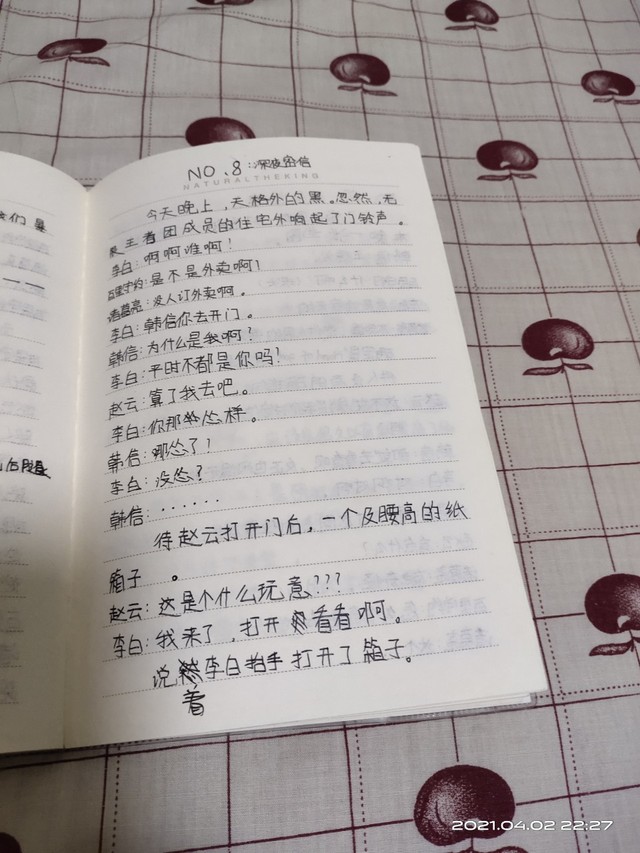 我们是
一一
NO.8:深夜密信
NATURALTHEKING
今天晚上,天格外的黑。忽然,无
限王者团成员的住宅外响起了门铃声。
李白:啊啊谁啊!
百里守约:是不是外卖啊!
诸葛亮:没人订外卖啊。
李白:韩信你去开门。
韩信:为什么是我啊?
李白:平时不都是你吗!
赵云:算了我去吧。
李白:你那怂样。
韩信:哪怂了!
李白:没怂?
韩信:······
待赵云打开门后,一个及腰高的纸
箱子。
赵云:这是个什么玩意???
李白:我来了,打开看看啊。
说着李白抬手打开了箱子。
2021.04.02 22:27